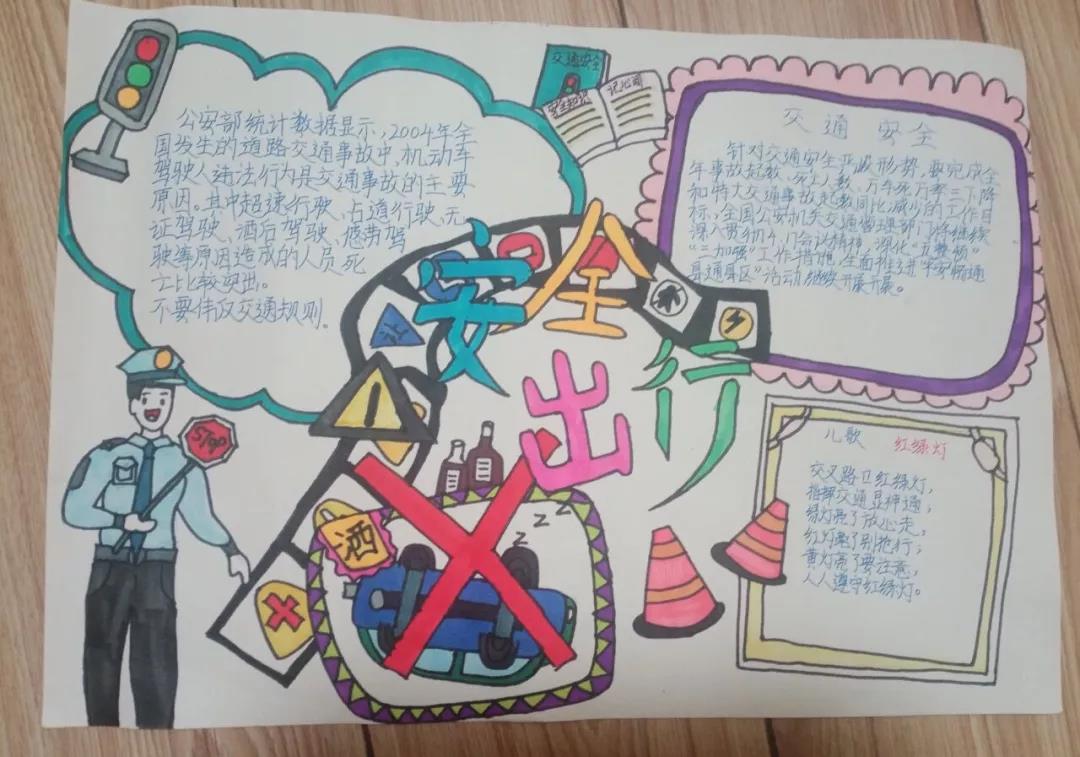 公安部统计数据显示,2004年全
国发生的道路交通事故中,机动车
驾驶人违法行为是交通事故的主要
原因。其中超速行驶、占道行驶、无
证驾驶、酒后驾驶、疲劳驾
驶等原因造成的人员死
亡比较突出。
不要伟反交通规则。
交通安全
安全知识
记心间
交通安全
针对交通安全严峻形势,要完成全
年事故起数、死亡人数、万车死亡率三下降
和特大交通事故起数同比减少的工作目
标,全国公安机关交通管理部门将继续
深入贯彻
会议精神,深化“五整顿”
“三加强”工作措施,全面推进“平安畅通
县通县区”活动继续开展开展。
安全
出行
让
STOP
酒
Z Z Z
儿歌 红绿灯
交叉路口红绿灯,
指挥交通显神通;
绿灯亮了放心走,
红灯亮了别抢行;
黄灯亮了要注意,
人人遵守红绿灯。